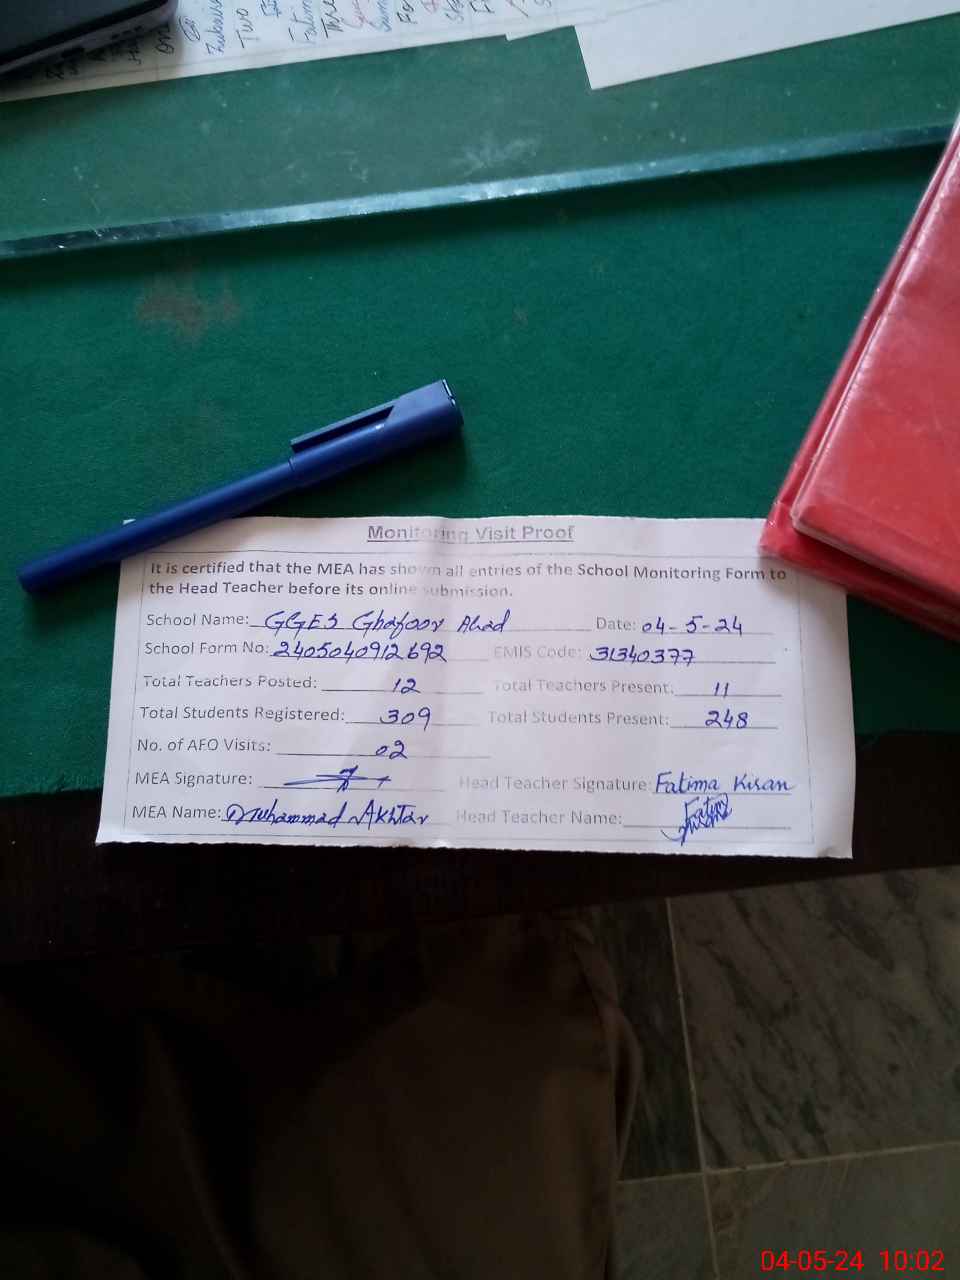 Two
Monitoring Visit Proof
It is certified that the MEA has shown all entries of the School Monitoring Form to
the Head Teacher before its online submission.
School Name: GGES Ghafoor Abad Date: 04-5-24
School Form No: 2405040912692 EMIS Code: 31340377
Total Teachers Posted: 12 Total Teachers Present: 11
Total Students Registered: 309 Total Students Present: 248
No. of AEO Visits: 02
MEA Signature: Head Teacher Signature: Fatima Kiran
MEA Name: Muhammad Akhtar Head Teacher Name:
04-05-24 10:02